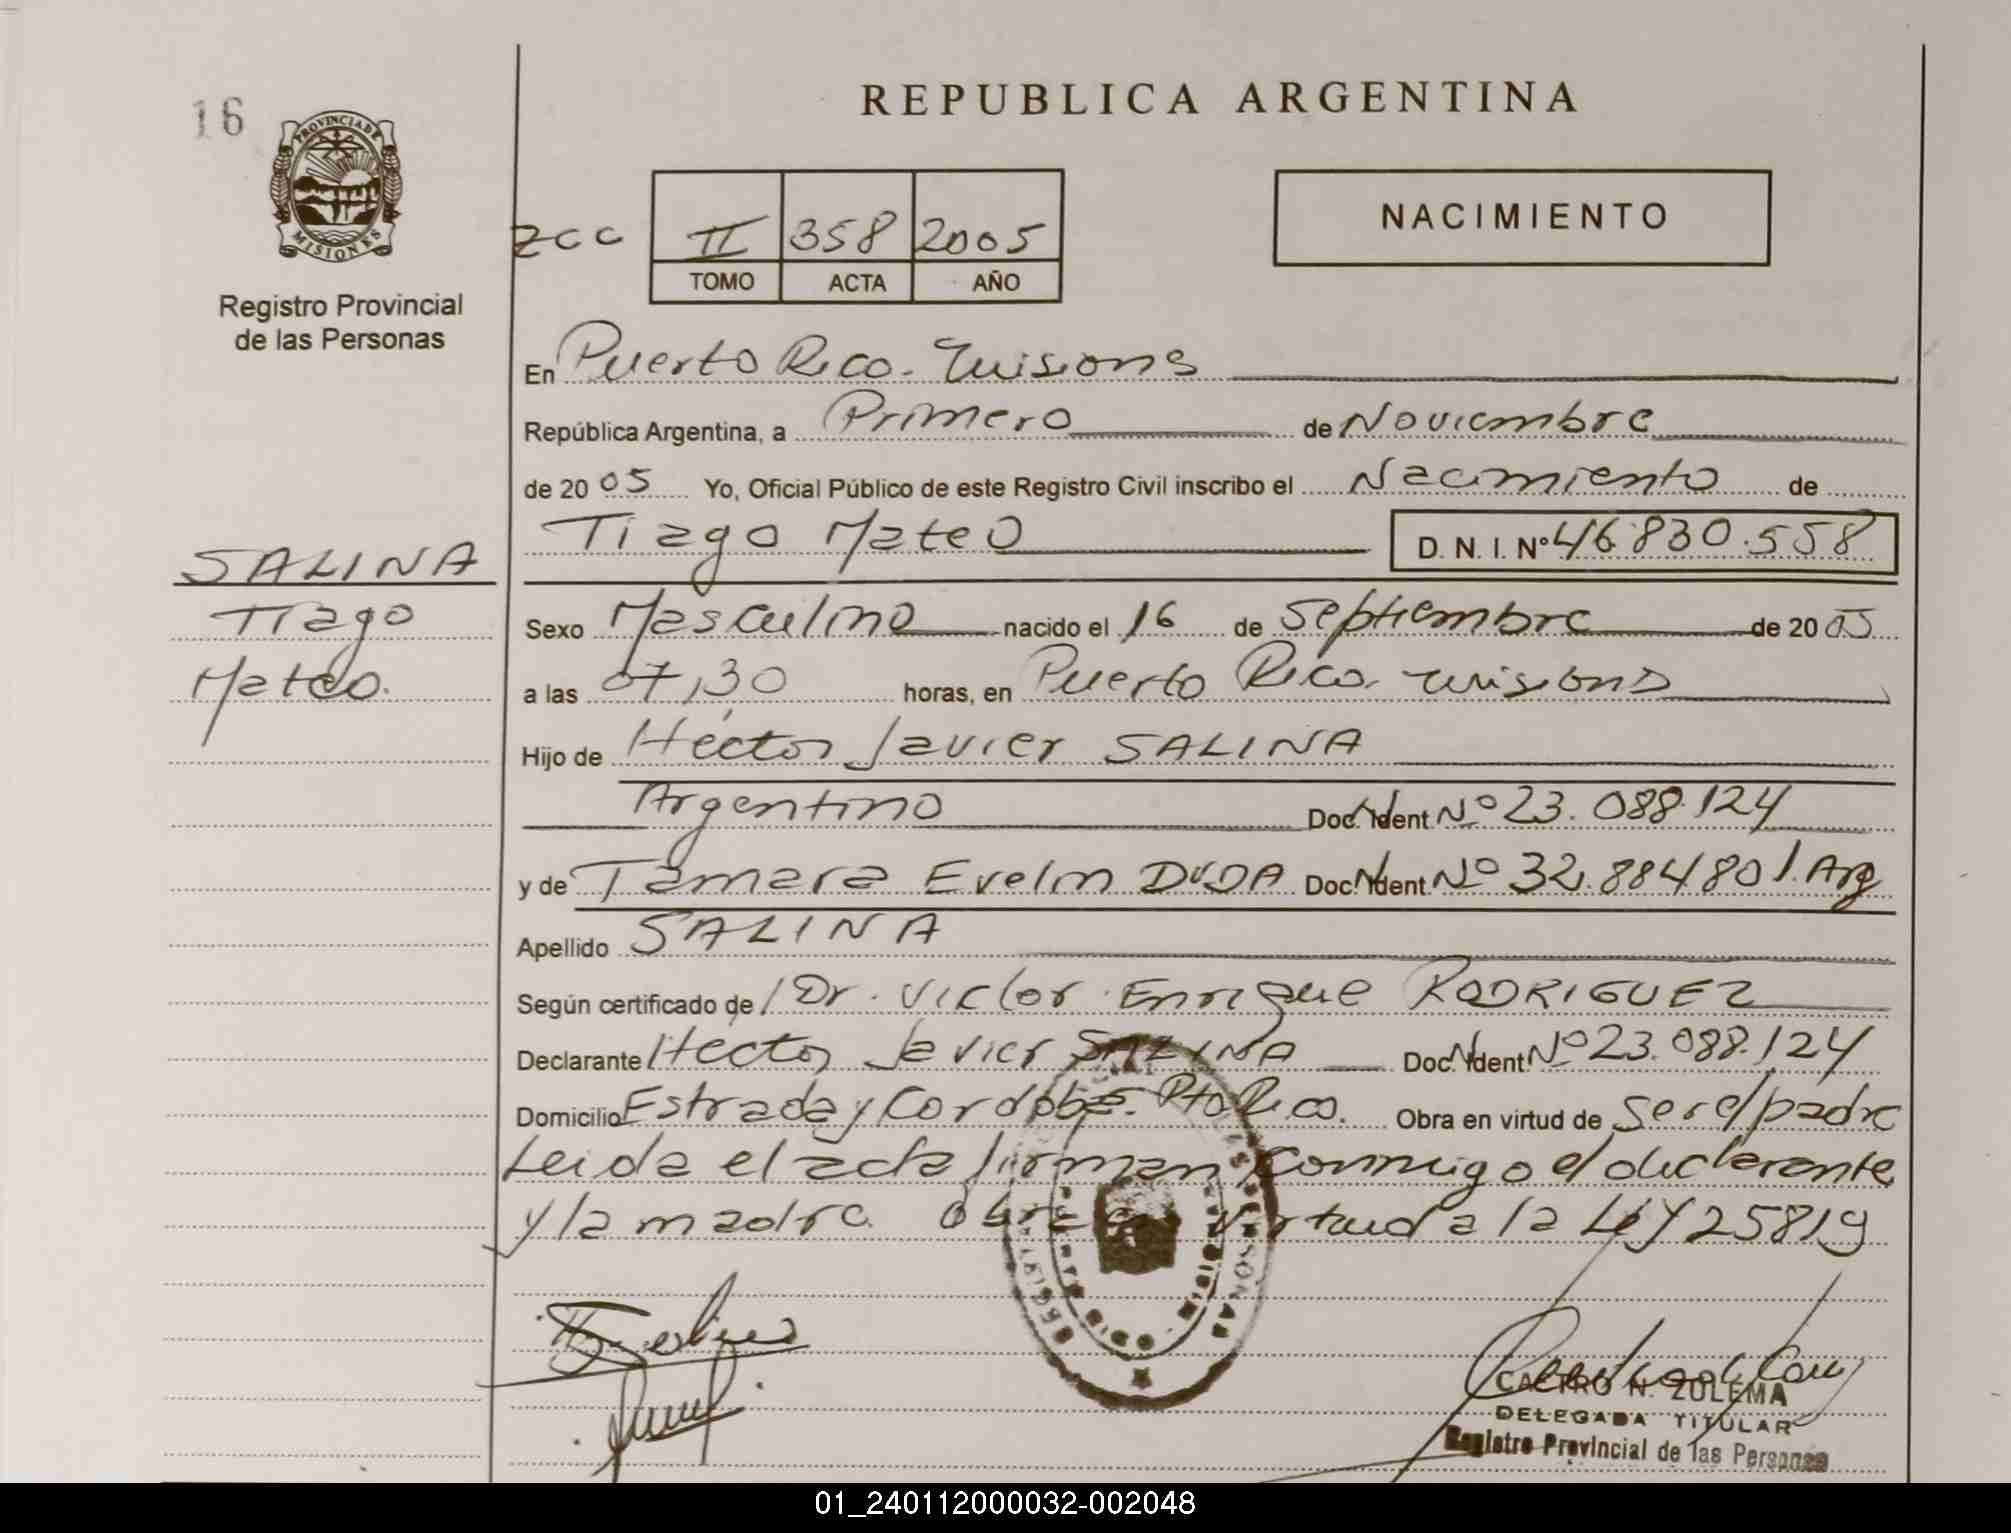 REPUBLICA ARGENTINA
16
PROVINCIA DE
MISIONES
Registro Provincial
de las Personas
NACIMIENTO
zcc II 358 2005
TOMO ACTA AÑO
En Puerto Rico. Misiones
República Argentina, a Primero de Noviembre
de 20 05 Yo, Oficial Público de este Registro Civil inscribo el Nacimiento de
Tiago Mateo D. N. I. Nº 46.830.558
SALINA
Tiago
Mateo.
Sexo Masculino nacido el 16 de Septiembre de 20 05
a las 07,30 horas, en Puerto Rico. Misiones
Hijo de Héctor Javier SALINA
Argentino Doc. Ident Nº 23.088.124
y de Tamara Evelin DUDA Doc. Ident Nº 32.884801. Arg
Apellido SALINA
Según certificado de Dr. Victor Enrique RODRIGUEZ
Declarante Héctor Javier SALINA Doc. Ident Nº 23.088.124
Domicilio Estrada y Cordoba. Pto Rico. Obra en virtud de ser el padre
Leida el acta firman conmigo el declarante
y la madre. Obra en virtud a la Ley 25819
CASTRO N. ZULEMA
DELEGADA TITULAR
Registro Provincial de las Personas
01_240112000032-002048